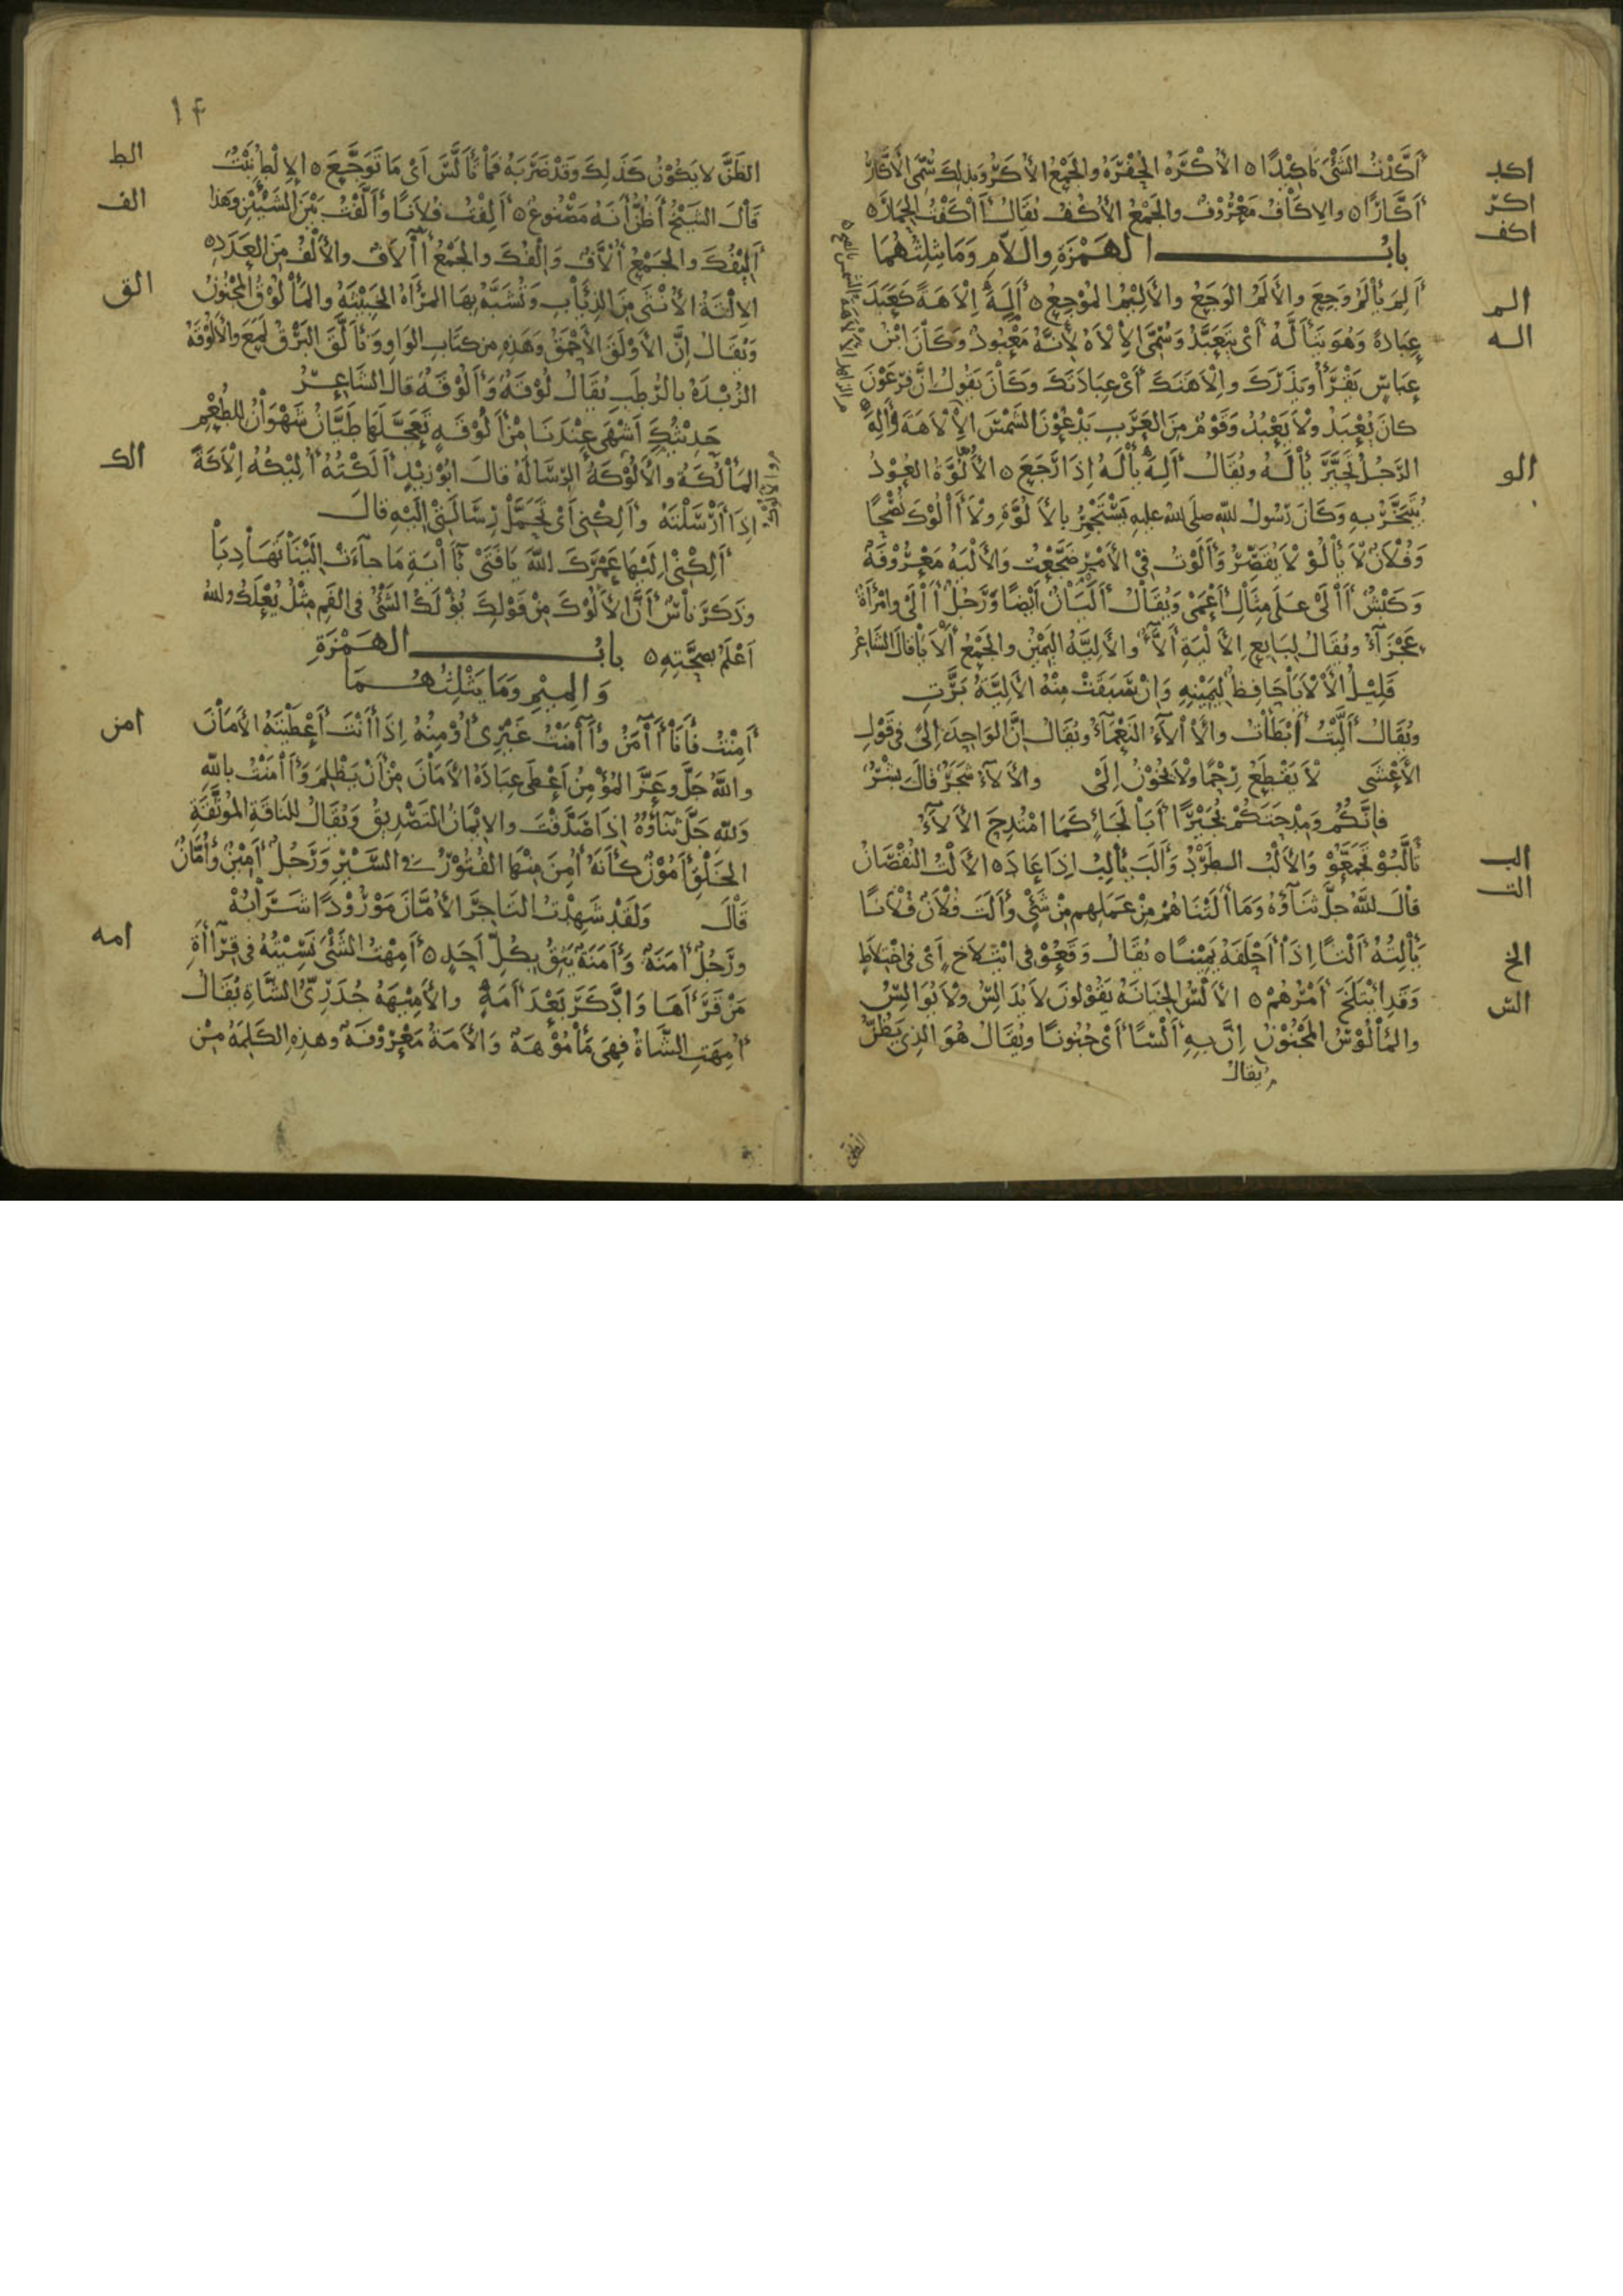 أَكَّدْتُ الشَّيْءَ تَأْكِيْدًا ٥ الأُكْرَةُ الحُفْرَةُ والجَمْعُ الأُكَرُ وبذلِكَ سُمِّيَ الأَكَّارُ
أَكَّارًا ٥ والإكَافُ مَعْرُوفٌ والجَمْعُ الأُكُفُ يُقَالُ أَاكَفْتُ الحِمَارَ ٥
بابُ الهَمْزَةِ واللَّامِ وَمَا يَثْلِثُهُمَا
أَلِمَ يَأْلَمُ وَجِعَ والأَلَمُ الوَجَعُ والأَلِيْمُ المُوْجِعُ ٥ أَلِهَ إِلَاهَةً كَعَبَدَ
عِبَادَةً وَهُوَ يَتَأَلَّهُ أَيْ يَتَعَبَّدُ وَسُمِّيَ الإِلَاهُ لِأَنَّهُ مَعْبُودٌ وَكَانَ ابْنُ
عَبَّاسٍ يَقْرَأُ ويَذَرَكَ وإِلَاهَتَكَ أَيْ عِبَادَتَكَ وَكَانَ يَقُولُ إِنَّ فِرْعَوْنَ
كَانَ يُعْبَدُ وَلَا يَعْبُدُ وَقَوْمٌ مِنَ العَرَبِ يَدْعُوْنَ الشَّمْسَ الإِلَاهَةَ وأَلِهَ
الرَّجُلُ تَحَيَّرَ يَأْلَهُ ويُقَالُ أَلِهَ يَأْلَهُ إِذَا رَجَعَ ٥ الأَلُوَّةُ العُوْدُ
يُتَبَخَّرُ بِهِ وَكَانَ رَسُولُ اللهِ صلى الله عليه يَسْتَجْمِرُ بِالأَلُوَّةِ وَلَا أَالُوْكَ نُصْحًا
وَفُلَانٌ لَا يَأْلُوْ لَا يُقَصِّرُ وَأَلَوْتُ فِي الأَمْرِ ضَجَّعْتُ وَالأَلْيَةُ مَعْرُوفَةٌ
وَكَبْشٌ أَالَى عَلَى مِثَالِ أَعْمَى وَيُقَالُ أَلْيَانُ أَيْضًا وَرَجُلٌ أَالَى وامْرَأَةٌ
عَجْزَآءُ ويُقَالُ لِبَايِعِ الأَلْيَةِ أَلَّآءٌ والأَلِيَّةُ اليَمِيْنُ والجَمْعُ أَلَايَا قَالَ الشَّاعِرُ
قَلِيْلُ الأَلَايَا حَافِظٌ لِيَمِيْنِهِ وَإِنْ سَبَقَتْ مِنْهُ الأَلِيَّةُ بَرَّتِ
ويُقَالُ أَلَّيْتُ أَبْطَأْتُ والأَالَآءُ النَّعْمَآءُ ويُقَالُ إِنَّ الوَاحِدَ إِلًى فِي قَوْلِ
الأَعْشَى لَا يَقْطَعُ رِحْمًا وَلَا يَخُوْنُ إِلَى والأَلَآءُ شَجَرٌ قَالَ بِشْرٌ
فَإِنَّكُمْ وَمِدْحَتَكُمْ بُجَيْرًا أَبَا لَجَإٍ كَمَا امْتُدِحَ الأَلَآءُ
تَأَلَّبُوْ تَجَمَّعُوْ وَالأَلْبُ الطَّرْدُ وَأَلَبَ يَأْلِبُ إِذَا عَادَ ٥ الأَلْتُ النُّقْصَانُ
قَالَ اللهُ جَلَّ ثَنَآؤُهُ وَمَا أَلَتْنَاهُمْ مِنْ عَمَلِهِم مِنْ شَيْءٍ وأَلَتَ فُلَانٌ فُلَانًا
يَأْلِتُهُ أَلْتًا إِذَا أَحْلَفَهُ يَمِيْنًا ٥ يُقَالُ وَقَعُوْ فِي ائْتِلَاخٍ أَيْ فِي اخْتِلَاطٍ
وَقَدِ ائْتَلَخَ أَمْرُهُمْ ٥ الأَلْسُ الخِيَانَةُ يَقُوْلُونَ لَا يُدَالِسُ ولَا يُوَالِسُ
والمَأْلُوْسُ المَجْنُوْنُ إِنَّ بِهِ أَلْسًا أَيْ جُنُونًا ويُقَالُ هُوَ الَّذِي يَظُنُّ
يقال
الظن
أكد
أكر
أكف
الم
اله
الو
الب
الت
الخ
الس
١٤
الظَنَّ لَا يَكُوْنُ كَذَلِكَ وَقَدْ ضَرَبَهُ فَمَا تَأَلَّسَ أَيْ مَا تَوَجَّعَ ٥
قَالَ الشَّيْخُ أَظُنُّ أَنَّهُ مَصْنُوعٌ ٥ أَلِفْتُ فُلَانًا وأَلَّفْتُ بَيْنَ الشَّيْئَيْنِ وَهَذَا
أَلِيْفُكَ والجَمْعُ أُلَّافٌ وَإِلْفُكَ والجَمْعُ أَآلَافٌ والأَلْفُ مِنَ العَدَدِ ٥
الإِلْقَةُ الأُنْثَى مِنَ الذِّئَابِ وَتُشَبَّهُ بِهَا المَرْأَةُ الخَبِيْثَةُ والمَأْلُوْقُ المَجْنُوْنُ
وَيُقَالُ إِنَّ الأَوْلَقَ الأَحْمَقُ وَهَذِهِ مِن كِتَابِ الوَاوِ وَتَأَلَّقَ البَرْقُ لَمَعَ والأَلُوْقَةُ
الزُّبْدَةُ بالرُّطَبِ يُقَالُ لُوْقَةٌ وَأَلُوْقَةٌ قَالَ الشَّاعِرُ
حَدِيْثُكِ أَشْهَى عِنْدَنَا مِنْ أَلُوْقَةٍ تَعَجَّلَهَا طَيَّانُ شَهْوَانُ لِلطُّعْمِ
المَأْلُكَةُ والأَلُوْكَةُ الرِّسَالَةُ قَالَ أَبُوْ زَيْدٍ أَلَكْتُهُ أُلِيْكُهُ إِلَاكَةً
إِذَا أَرْسَلْتَهُ وأَلِكْنِي أَيْ تَحَمَّلْ رِسَالَتِي إِلَيْهِ قَالَ
أَلِكْنِي إِلَيْهَا عَمْرَكَ اللهَ يَا فَتًى بِآيَةِ مَا جَآءَتْ إِلَيْنَا تَهَادِيَا
وَذَكَرَ نَاسٌ أَنَّ الأَلُوْكَ مِنْ قَوْلِكَ يُؤْلَكُ الشَّيْءُ فِي الفَمِ مِثْلُ يُعْلَكُ والله
أَعْلَمُ بِصِحَّتِهِ ٥ بابُ الهَمْزَةِ
وَالمِيْمِ وَمَا يَثْلِثُهُمَا
أَمِنْتُ فَأَنَا أَآمَنُ وأَآمَنْتُ غَيْرِي أُؤْمِنُهُ إِذَا أَنْتَ أَعْطَيْتَهُ الأَمَانَ
واللهُ جَلَّ وعَزَّ المُؤْمِنُ أَعْطَى عِبَادَهُ الأَمَانَ مِنْ أَنْ يَظْلِمَ وَأَآمَنْتُ بِاللهِ
وَلِلهِ جَلَّ ثَنَآؤُهُ إِذَا صَدَّقْتَ والإِيْمَانُ التَّصْدِيقُ وَيُقَالُ لِلنَّاقَةِ المُوَثَّقَةِ
الخَلْقِ أَمُوْنٌ كَأَنَّهُ أُمِنَ مِنْهَا الفُتُوْرُ فِي السَّيْرِ وَرَجُلٌ أَمِيْنٌ وَأُمَّانٌ
قَالَ وَلَقَدْ شَهِدْتُ التَّاجِرَ الأُمَّانَ مَوْرُوْدًا شَرَابُهْ
وَرَجُلٌ أُمَنَةٌ وَأَمَنَةٌ يَثِقُ بِكُلِّ أَحَدٍ ٥ أَمِهْتُ الشَّيْءَ نَسِيْتُهُ فِي قِرَآأَةِ
مَنْ قَرَأَهَا وَادَّكَرَ بَعْدَ أَمَهٍ والأَمِيْهَهُ جُدَرِيُّ الشَّاةِ يُقَالُ
أُمِهَتِ الشَّاةُ فَهِيَ مَأْمُوْهَةٌ وَالأَمَةُ مَعْرُوْفَةٌ وهذِهِ الكَلِمَةُ مِنْ
الط
الف
الق
الك
امن
امه